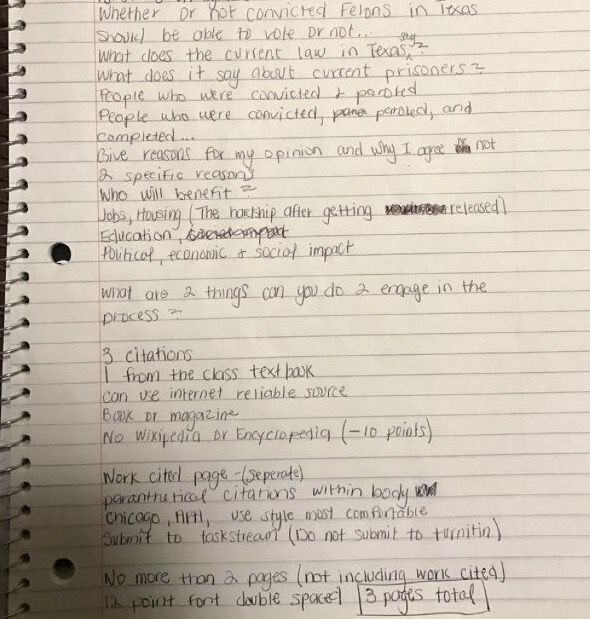 Whether or not convicted Felons in Texas
should be able to vote or not...
What does the current law in Texas, say?
What does it say about current prisoners?
People who were convicted & paroled
People who were convicted, paroled, and
completed...
Give reasons for my opinion and why I agree or not
2 specific reasons
Who will benefit?
Jobs, Housing (The hardship after getting released)
Education,
Political, economic & social impact
What are 2 things can you do 2 engage in the
process?
3 citations
1 from the class textbook
can use internet reliable source
Book or magazine
No Wikipedia or Encyclopedia (-10 points)
Work cited page -(seperate)
paranthetical citations within body
Chicago, APA, use style most comfortable
Submit to taskstream (Do not submit to turnitin)
No more than 2 pages (not including work cited)
12 point font double spaced 3 pages total